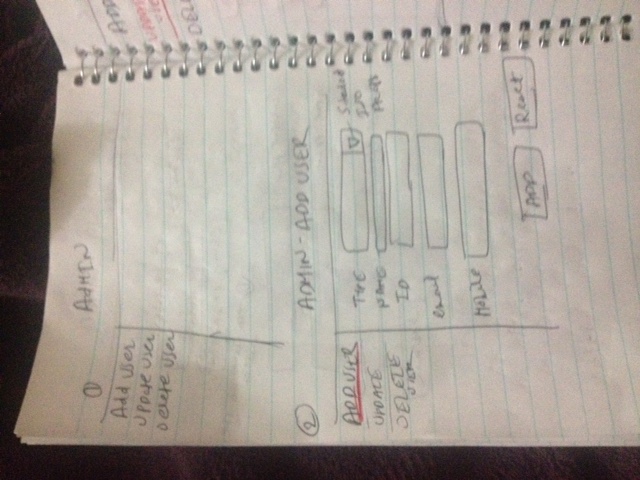 1
ADMIN
Add user
Update user
Delete user
2
ADMIN - ADD USER
ADD USER
UPDATE
DELETE
USER
TYPE
NAME
ID
email
Mobile
ADD
Reset
ADD
UPDATE
DEL